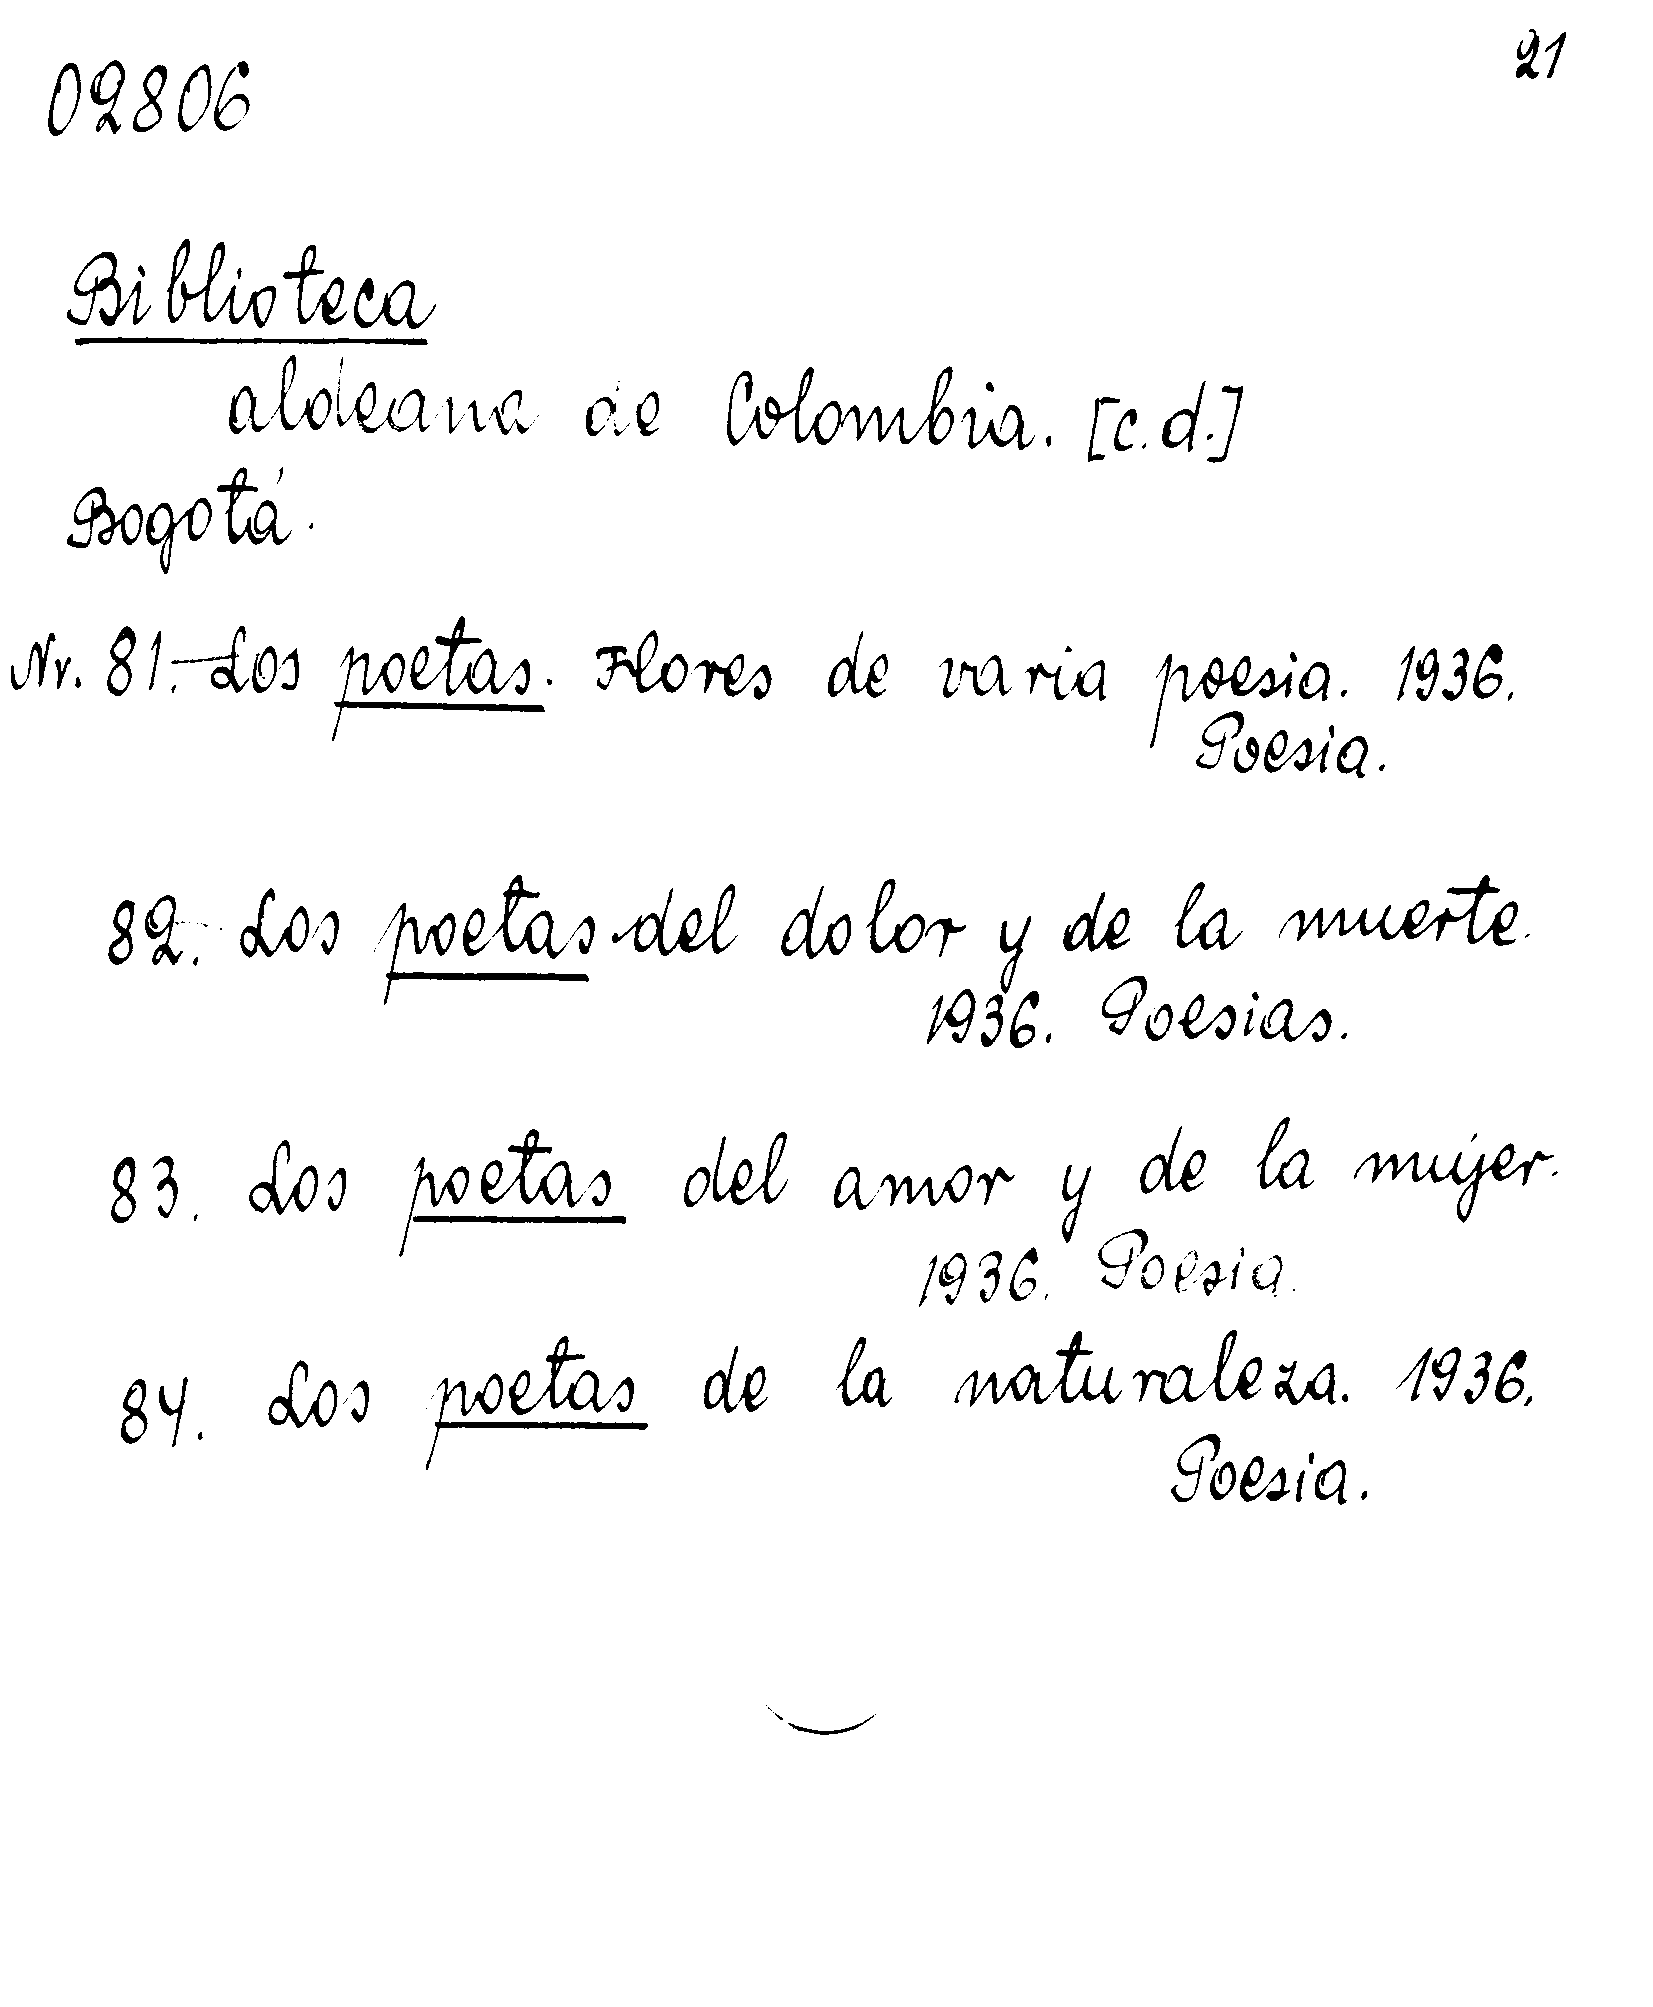 21
02806
Biblioteca
aldeana de Colombia. [c.d.]
Bogotá.
Nr. 81.-Los poetas. Flores de varia poesia. 1936.
Poesia.
82. Los poetas del dolor y de la muerte.
1936. Poesias.
83. Los poetas del amor y de la mujer.
1936. Poesia.
84. Los poetas de la naturaleza. 1936.
Poesia.